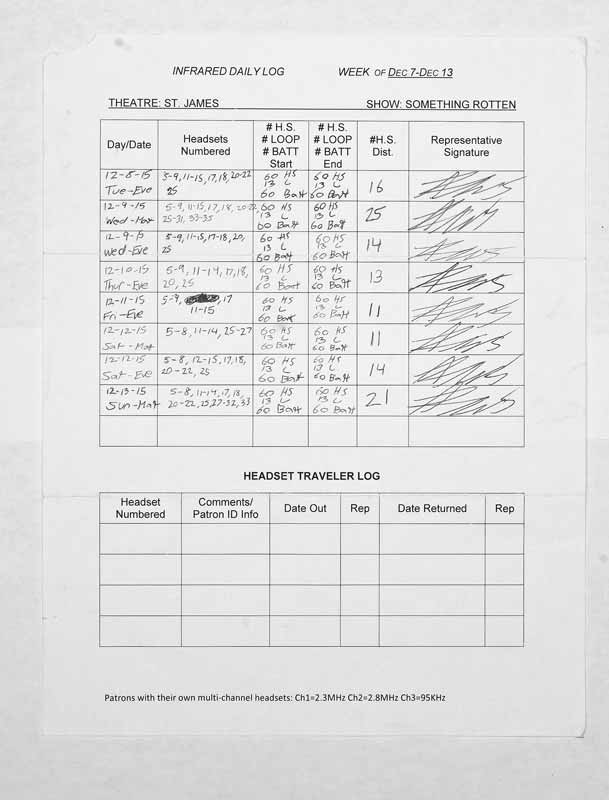 INFRARED DAILY LOG WEEK OF DEC 7-DEC 13
THEATRE: ST. JAMES SHOW: SOMETHING ROTTEN
Day/Date
Headsets
Numbered
# H.S.
# LOOP
# BATT
Start
# H.S.
# LOOP
# BATT
End
#H.S.
Dist.
Representative
Signature
12-8-15
Tue-Eve
5-9, 11-15, 17, 18, 20-22
25
60 HS
13 L
60 Batt
60 HS
13 L
60 Batt
16
12-9-15
Wed-Mat
5-9, 11-15, 17, 18, 20-22,
25-31, 33-35
60 HS
13 L
60 Batt
60 HS
13 L
60 Batt
25
12-9-15
Wed-Eve
5-9, 11-15, 17-18, 20,
25
60 HS
13 L
60 Batt
60 HS
13 L
60 Batt
14
12-10-15
Thur-Eve
5-9, 11-14, 17, 18,
20, 25
60 HS
13 L
60 Batt
60 HS
13 L
60 Batt
13
12-11-15
Fri-Eve
5-9, , 17
11-15
60 HS
13 L
60 Batt
60 HS
13 L
60 Batt
11
12-12-15
Sat-Mat
5-8, 11-14, 25-27
60 HS
13 L
60 Batt
60 HS
13 L
60 Batt
11
12-12-15
Sat-Eve
5-8, 12-15, 17, 18,
20-22, 25
60 HS
13 L
60 Batt
60 HS
13 L
60 Batt
14
12-13-15
Sun-Mat
5-8, 11-14, 17, 18,
20-22, 25, 27-32, 33
60 HS
13 L
60 Batt
60 HS
13 L
60 Batt
21
HEADSET TRAVELER LOG
Headset
Numbered
Comments/
Patron ID Info
Date Out
Rep
Date Returned
Rep
Patrons with their own multi-channel headsets: Ch1=2.3MHz Ch2=2.8MHz Ch3=95KHz